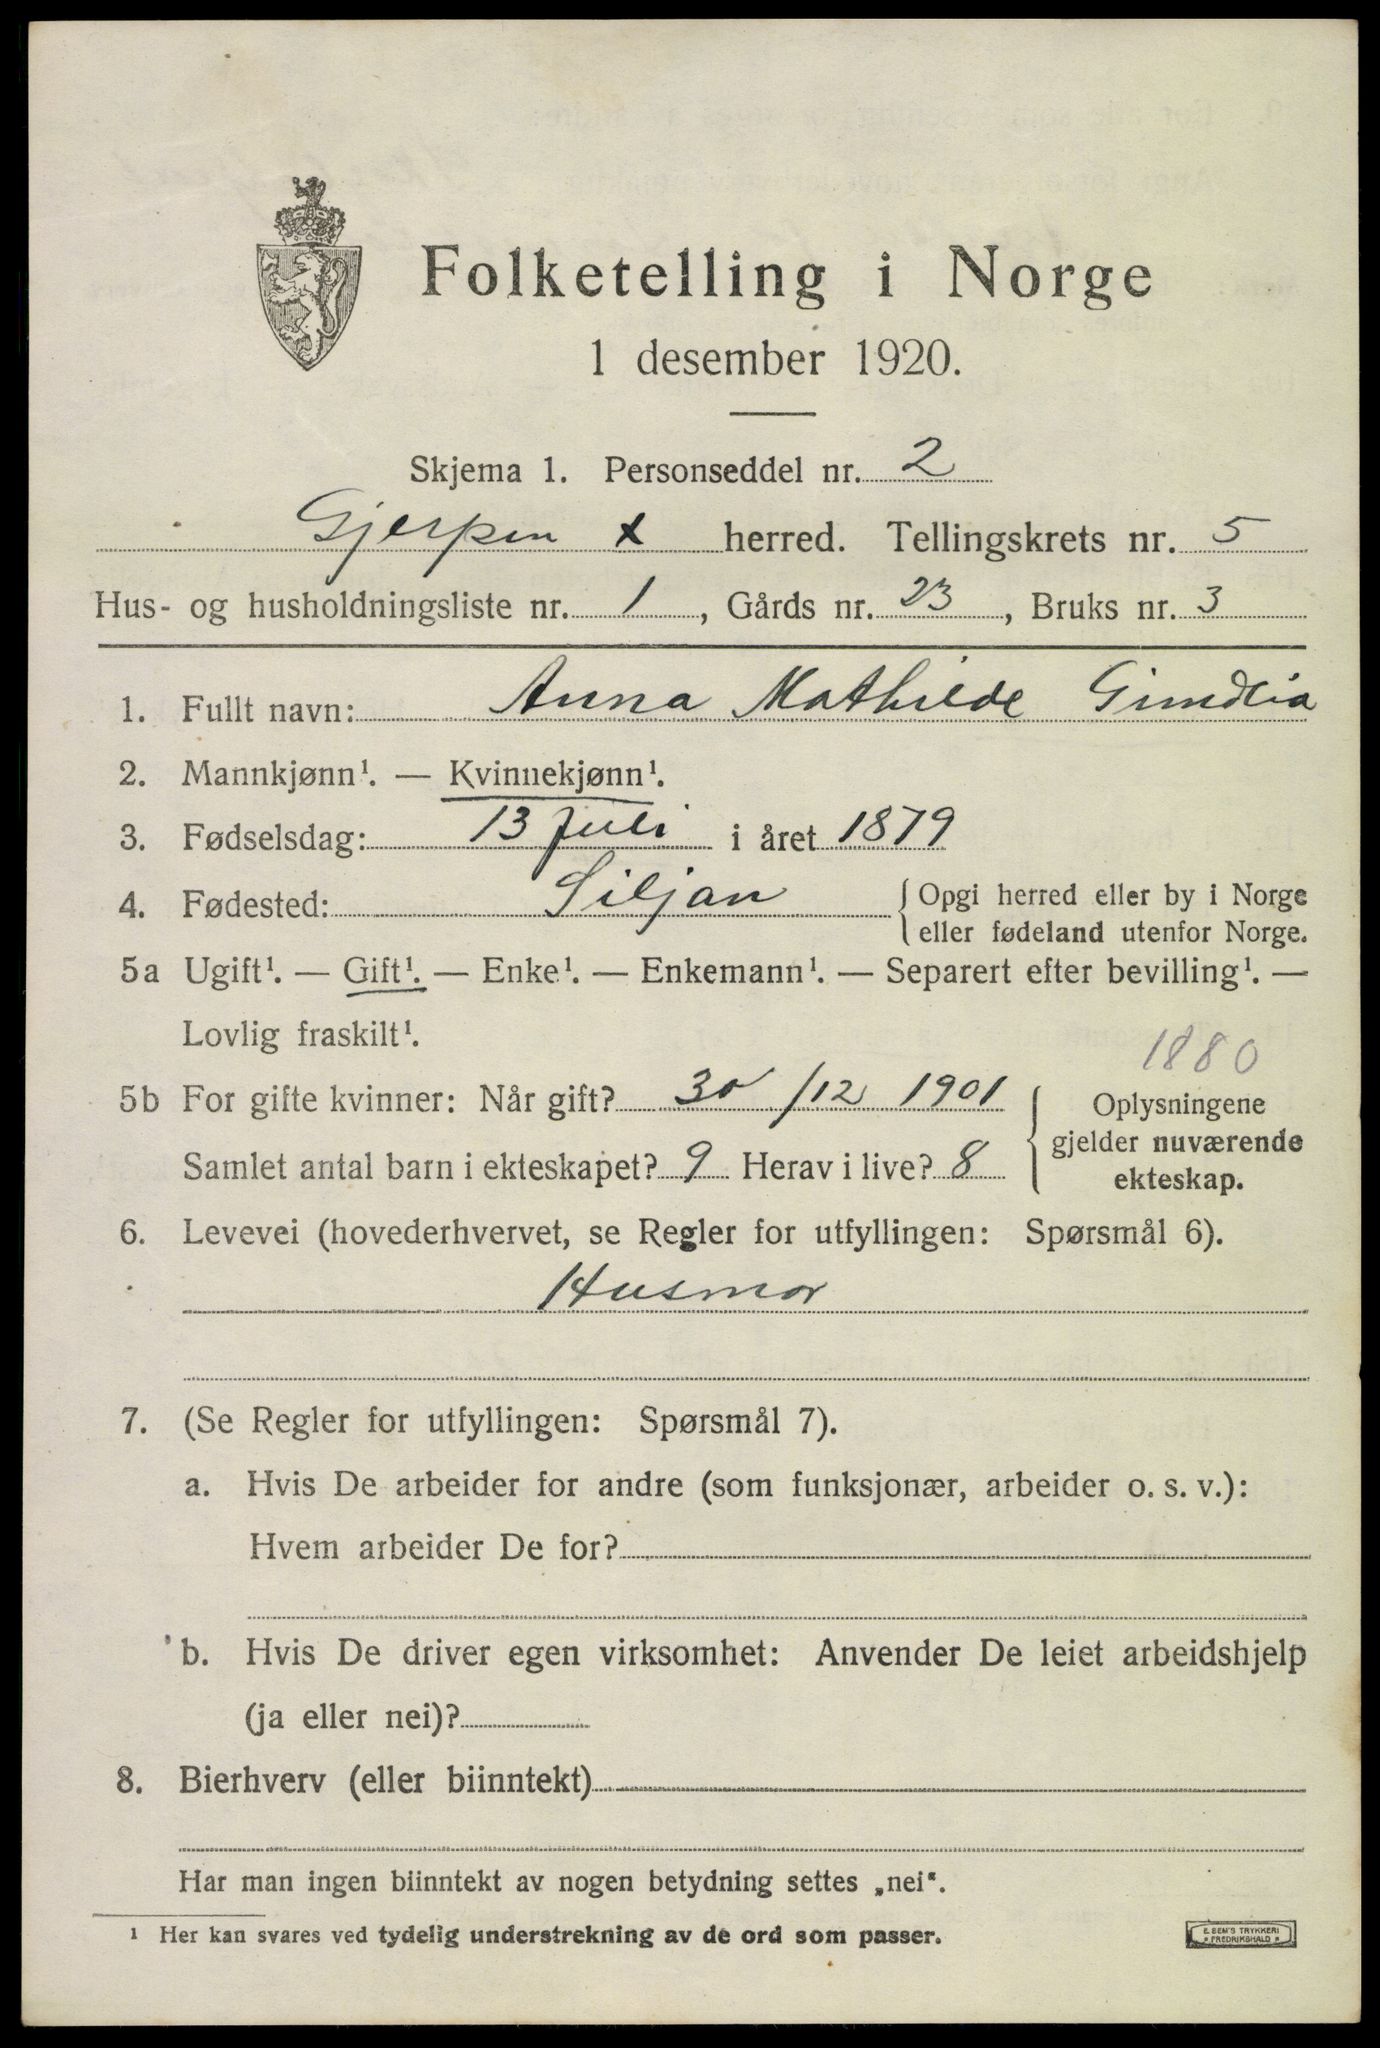 Folketelling i Norge
1 desember 1920.
Skjema 1. Personseddel nr. 2
Gjerpen x herred. Tellingskrets nr. 5
Hus- og husholdningsliste nr. 1, Gårds nr. 23, Bruks nr. 3
1. Fullt navn: Anna Mathilde Gimdlia
2. Mannkjønn¹. — Kvinnekjønn¹.
3. Fødselsdag: 13 Juli i året 1879
4. Fødested: Siljan { Opgi herred eller by i Norge
eller fødeland utenfor Norge.
5a Ugift¹. — Gift¹. — Enke¹. — Enkemann¹. — Separert efter bevilling¹. —
Lovlig fraskilt¹.
1880
5b For gifte kvinner: Når gift? 30/12 1901
Samlet antal barn i ekteskapet? 9 Herav i live? 8
Oplysningene
gjelder nuværende
ekteskap.
6. Levevei (hovederhvervet, se Regler for utfyllingen: Spørsmål 6).
Husmor
7. (Se Regler for utfyllingen: Spørsmål 7).
a. Hvis De arbeider for andre (som funksjonær, arbeider o. s. v.):
Hvem arbeider De for?
b. Hvis De driver egen virksomhet: Anvender De leiet arbeidshjelp
(ja eller nei)?
8. Bierhverv (eller biinntekt)
Har man ingen biinntekt av nogen betydning settes „nei".
¹ Her kan svares ved tydelig understrekning av de ord som passer.
E. SEM'S TRYKKERI
* FREDRIKSHALD *